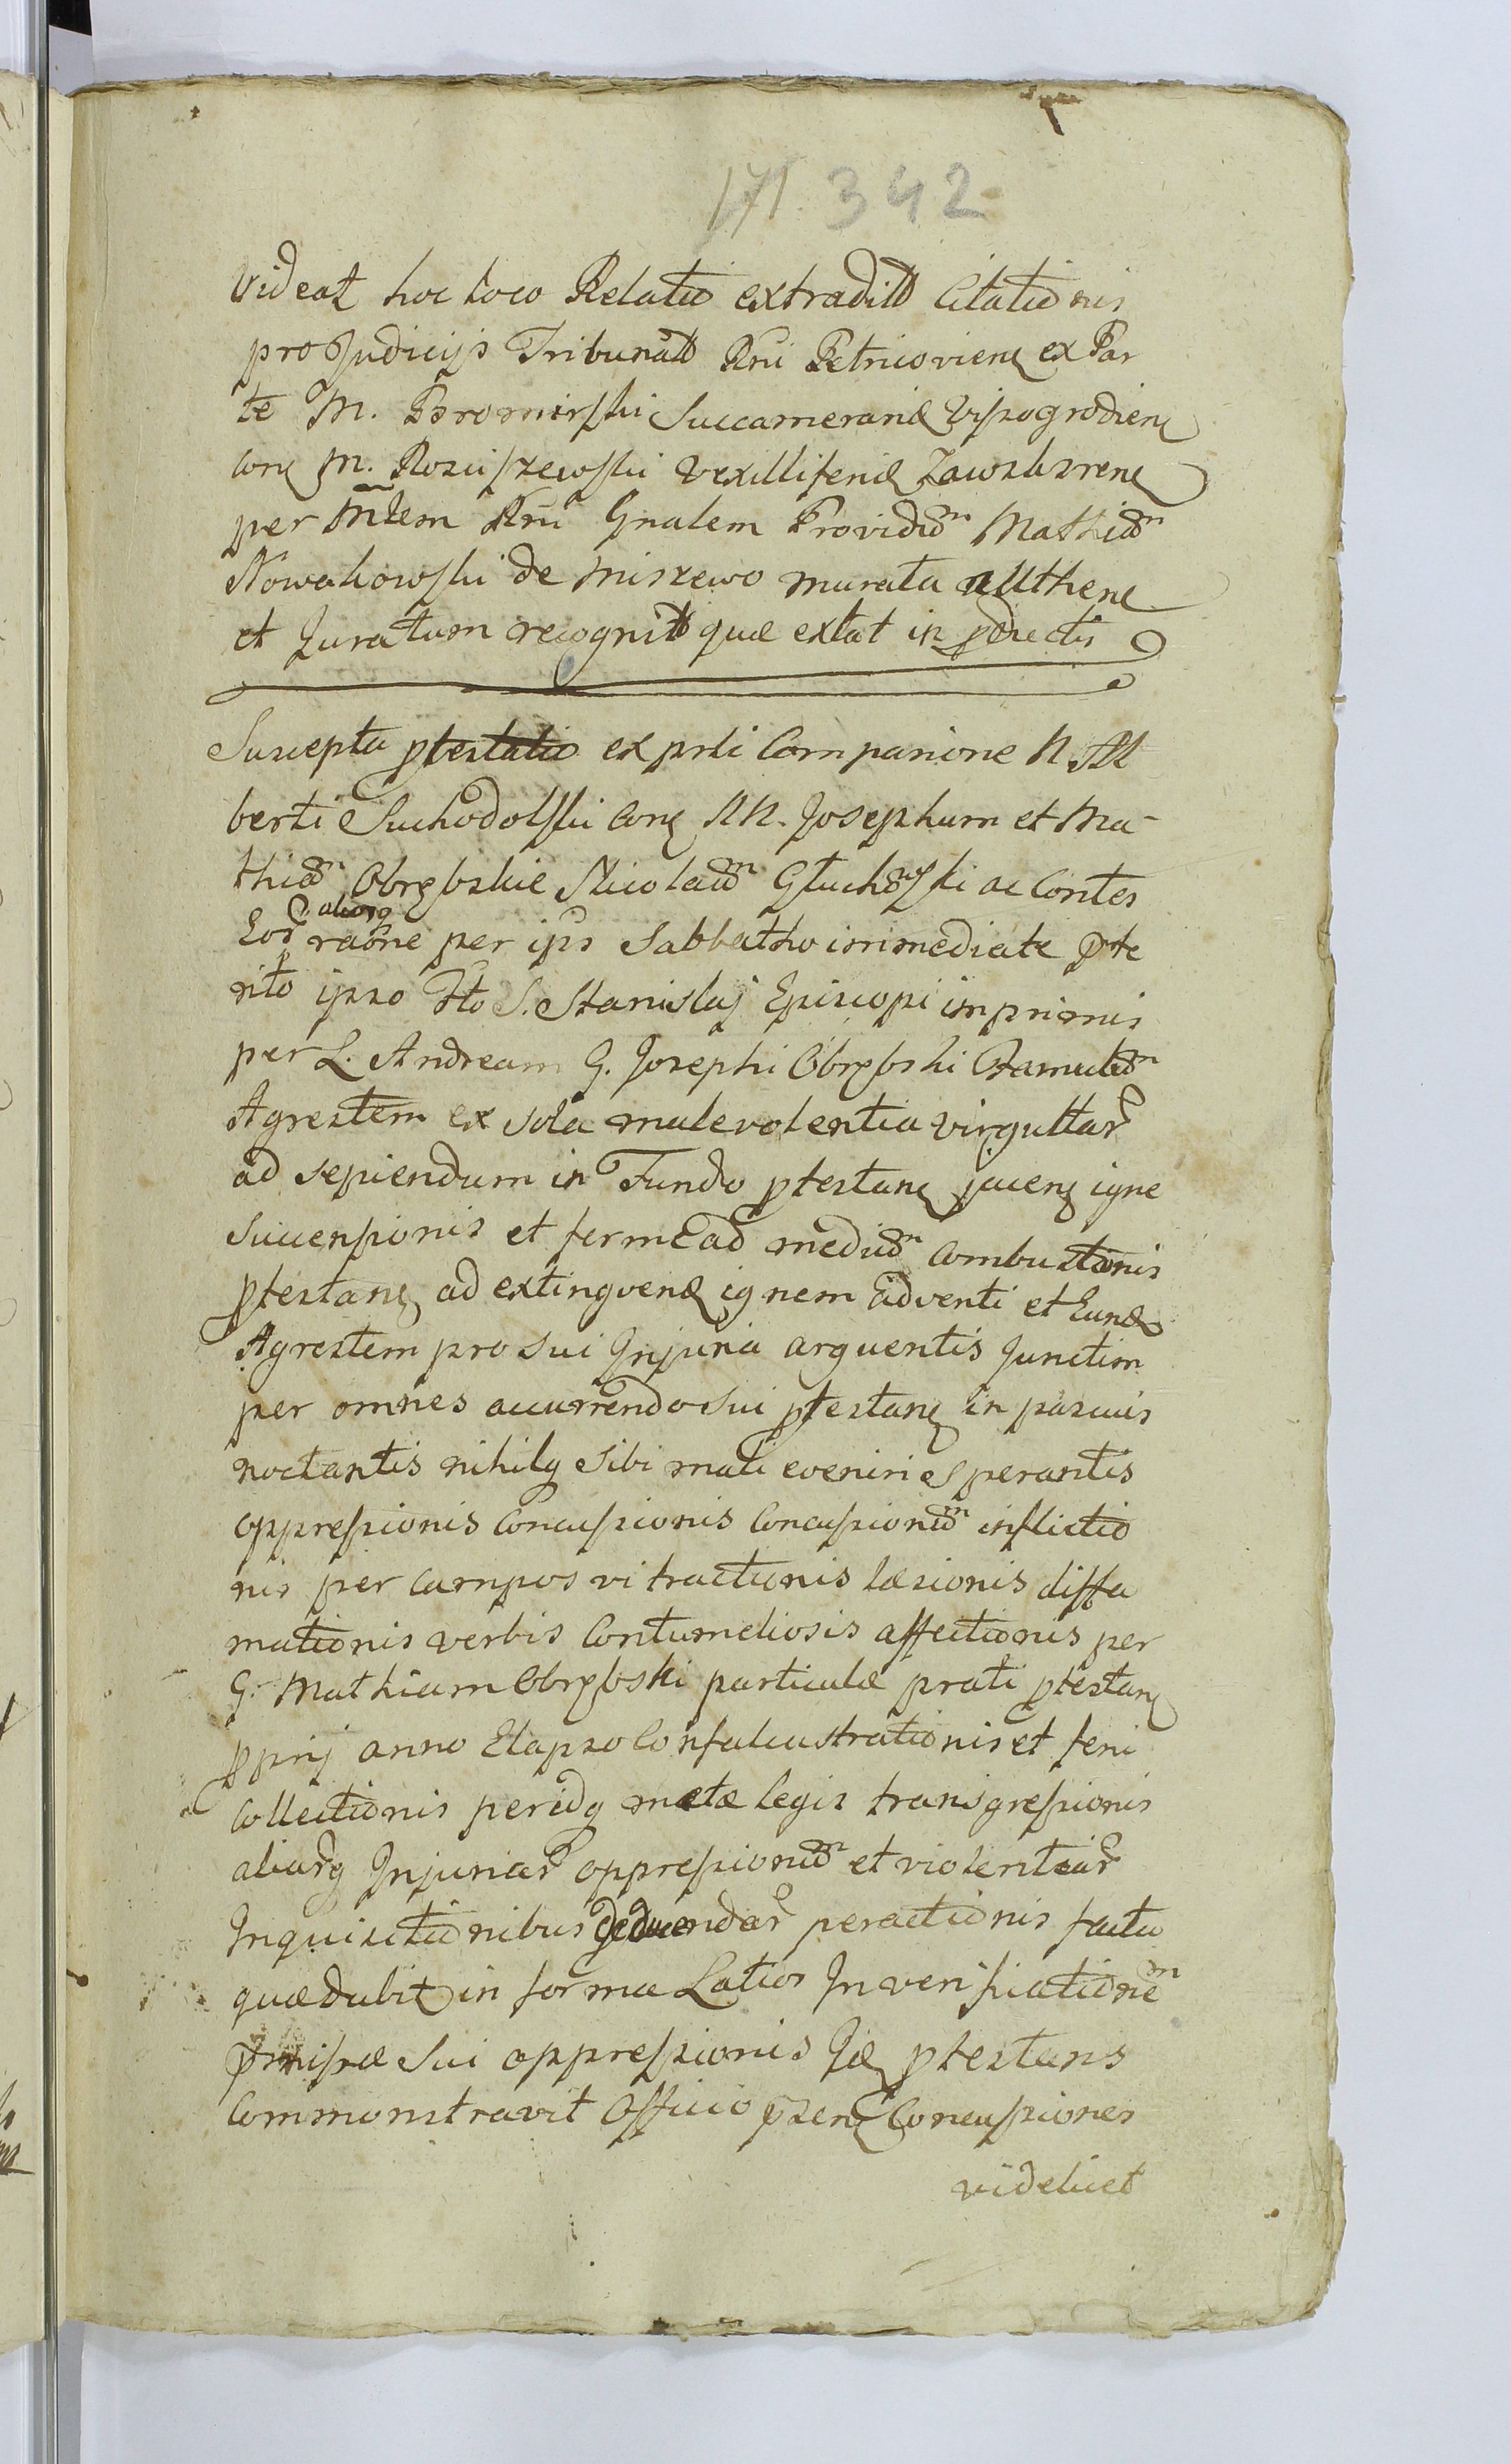 171. 342
Videat hoc loco Relatio extradit Citationis
pro Judicijs Tribunal Rni Petricovien ex Par
te M. Bromirski Succamerarid Wiszogrodien
con M. Rosciszewski Vexilliferid Zawskrzen
per Mtem Rni Gnalem Providum Mathiam
Nowakowski de Miszewo Murata authen
et Juratum recognit quæ extat in pdrectis
Suscepta ptestatio ex prti Comparione N. Al
berti Suchodolski con NN. Josephum et Ma-
thiam Obrębskie Nicolaum Głuchowski ac Contes
aliorq
Eor raone per ips Sabbatho immediate pte
rito ipso Fto S. Stanislaj Episcopi imprimis
per L. Andream G. Josephi Obrębski Famulum
Agrestem ex sola malevolentia virgultar
ad sepiendum in Fundo ptestan jacen igne
Succensionis et ferme ad medium Combustionis
ptestan ad extinguend ignem adventi et Eund
Agrestem pro sui Injuria arguentis Junctim
per omnes accurrendo sui ptestan in pascuis
noctantis nihilq sibi mali eveniri sperantis
oppressionis Concussionis Concussionum inflictio
nis per campos vi tractionis læsionis diffa
mationis verbis Contumeliosis affectionis per
G. Mathiam Obrębski particulæ prati ptestan
pprij anno Elapso Confalcastrationis et feni
Collectionis peridq metæ legis transgressionis
aliarq Injuriar oppressionum et violentiar
Inquisitionibus deducendar peractionis facta
quæ dabit in forma Latior In verificationem
pmissæ sui oppressionis Id ptestans
Commonstravit Officio psen Concussiones
videlicet